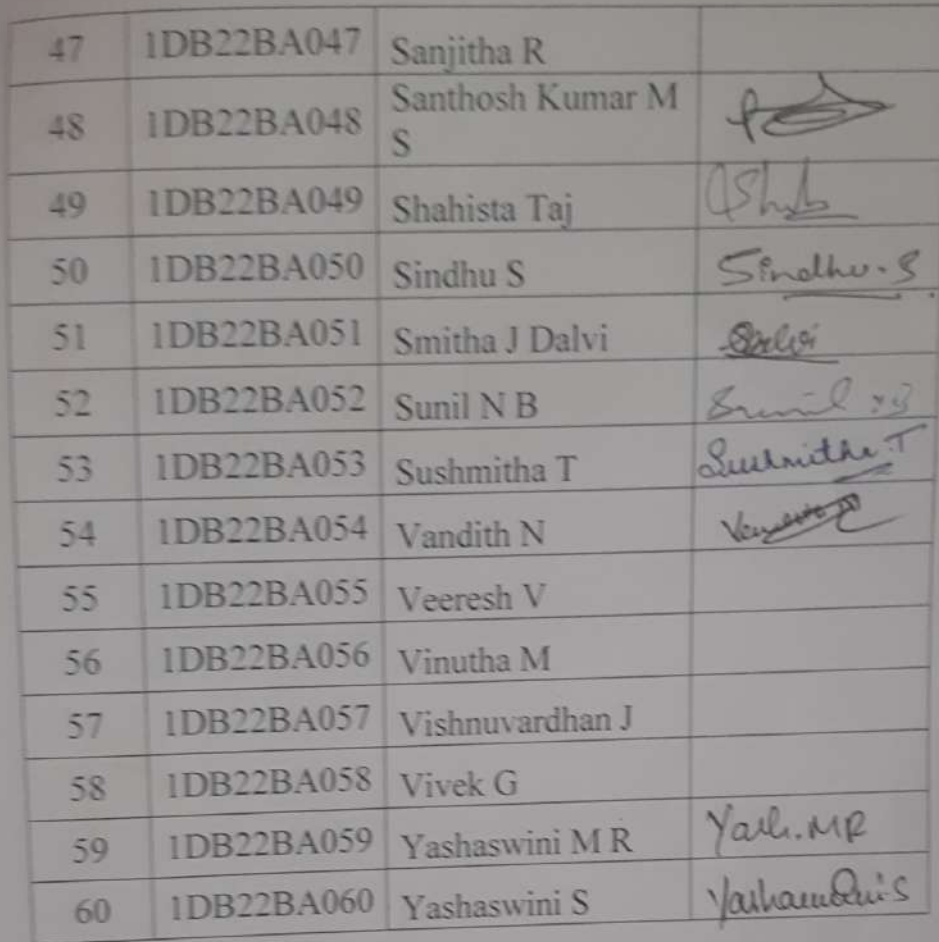 47 1DB22BA047 Sanjitha R
48 1DB22BA048 Santhosh Kumar M
S
49 1DB22BA049 Shahista Taj
50 1DB22BA050 Sindhu S Sindhu.S
51 1DB22BA051 Smitha J Dalvi Dalvi
52 1DB22BA052 Sunil N B Sunil NB
53 1DB22BA053 Sushmitha T Sushmitha T
54 1DB22BA054 Vandith N
55 1DB22BA055 Veeresh V
56 1DB22BA056 Vinutha M
57 1DB22BA057 Vishnuvardhan J
58 1DB22BA058 Vivek G
59 1DB22BA059 Yashaswini M R Yash.MR
60 1DB22BA060 Yashaswini S Yashaswini.S